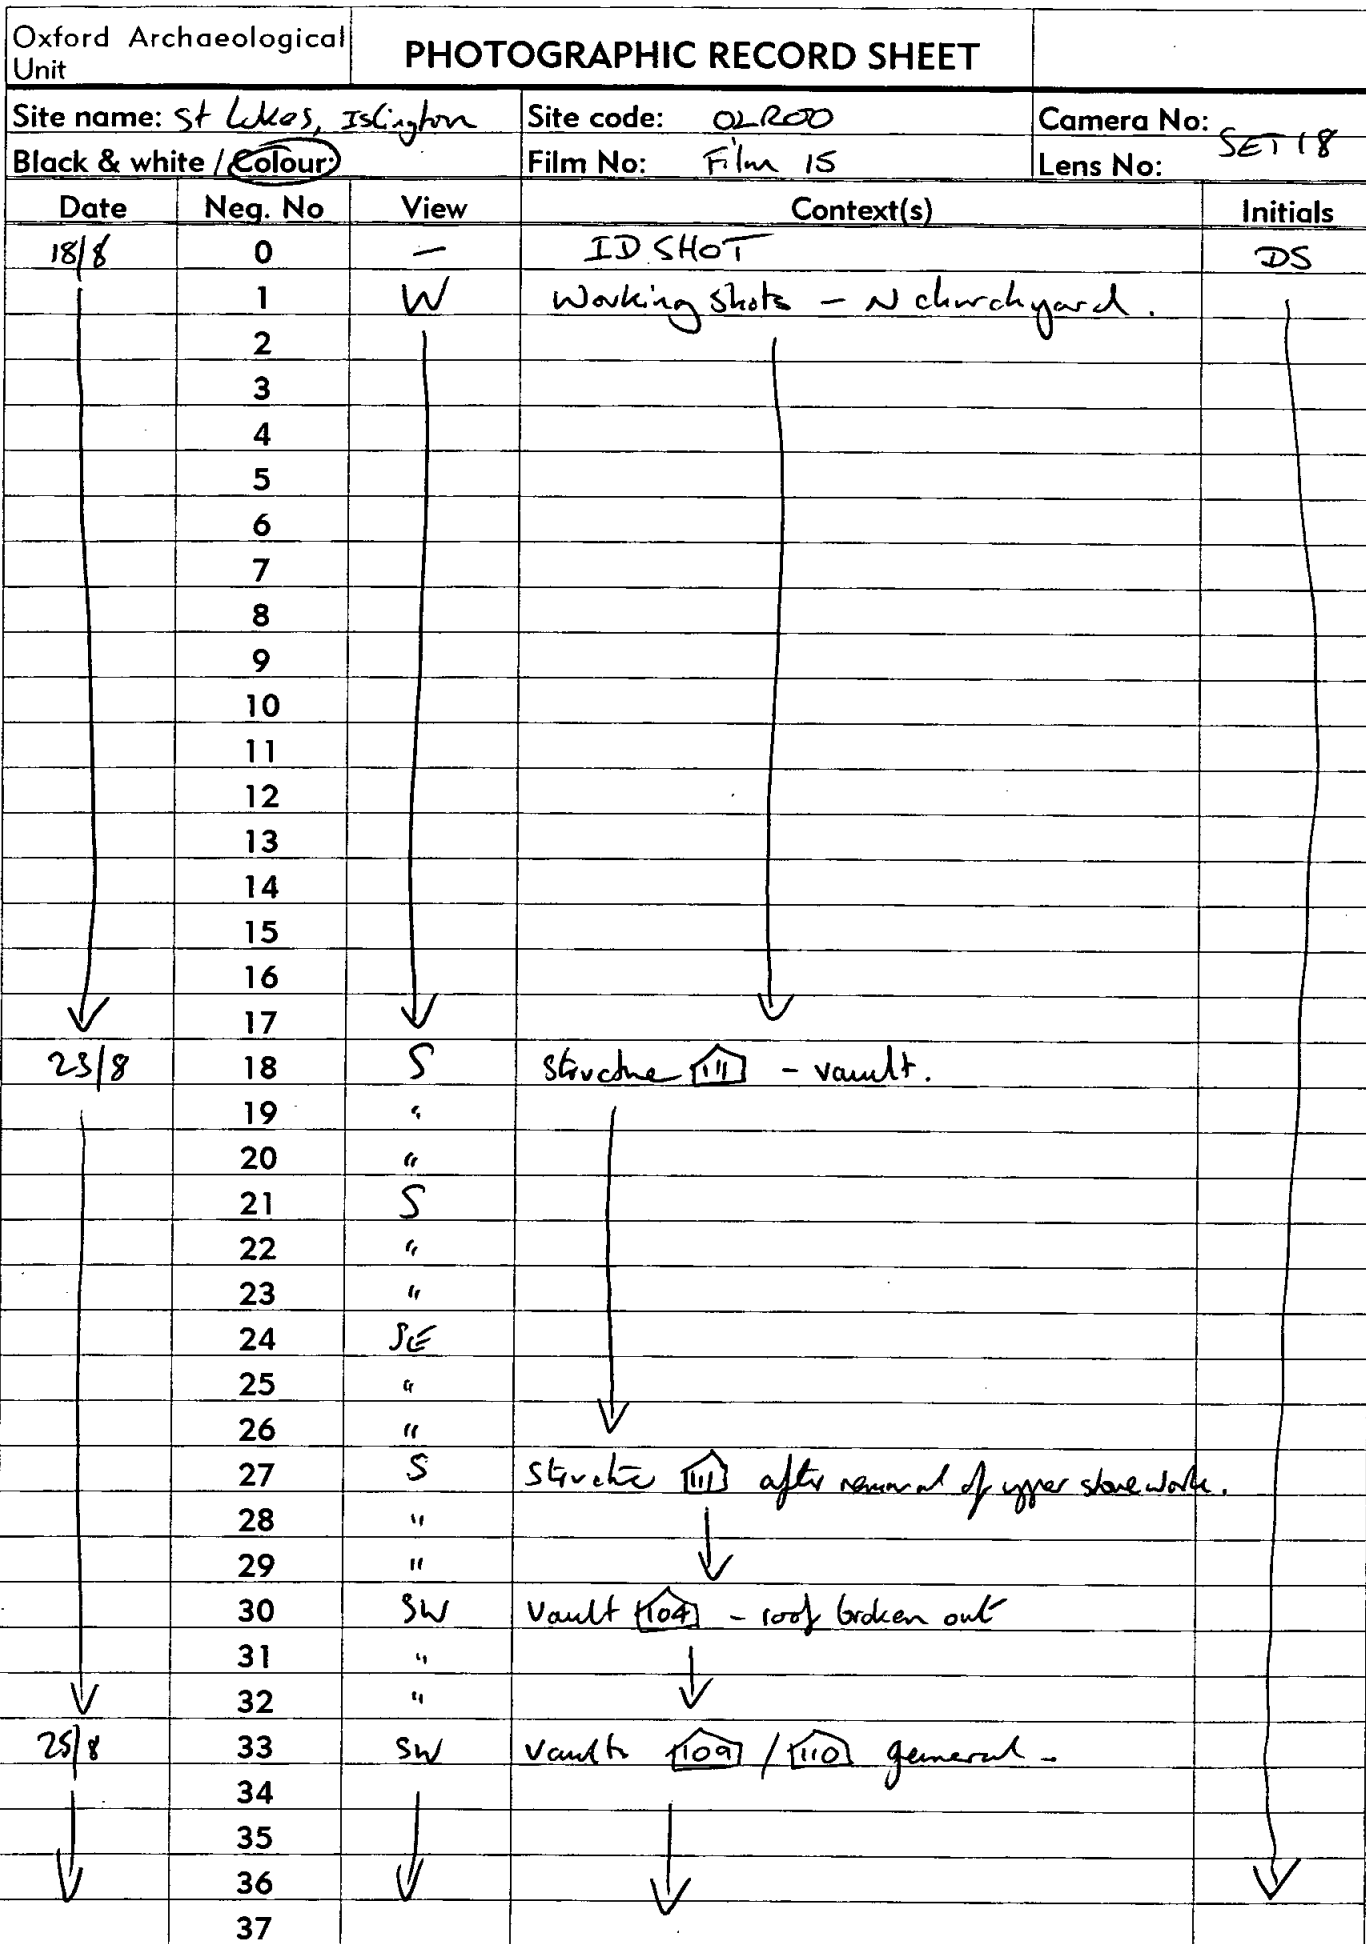 Oxford Archaeological
Unit
PHOTOGRAPHIC RECORD SHEET
Site name: St Lukes, Islington
Site code: OLR00
Camera No:
SET 18
Black & white / Colour:
Film No: Film 15
Lens No:
Date Neg. No View Context(s) Initials
18/8 0 — ID SHOT DS
1 W Working shots - N churchyard.
2
3
4
5
6
7
8
9
10
11
12
13
14
15
16
17
23/8 18 S structure 111 - vault.
19 "
20 "
21 S
22 "
23 "
24 SE
25 "
26 "
27 S structure 111 after removal of upper stonework.
28 "
29 "
30 SW Vault 104 - roof broken out
31 "
32 "
25/8 33 SW Vaults 109 / 110 general -
34
35
36
37